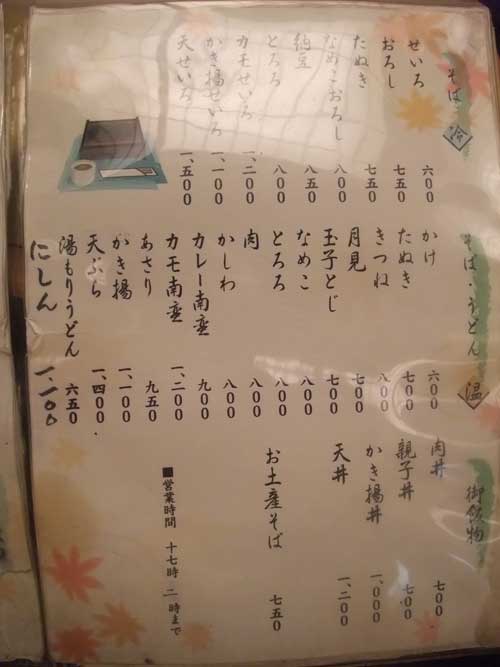 そば 冷
せいろ 六〇〇
おろし 七五〇
たぬき 七五〇
なめこおろし 八〇〇
納豆 八五〇
とろろ 八〇〇
カモせいろ 一、二〇〇
かき揚せいろ 一、一〇〇
天せいろ 一、五〇〇
そば・うどん 温
かけ 六〇〇
たぬき 七〇〇
きつね 八〇〇
月見 七〇〇
玉子とじ 七〇〇
なめこ 八〇〇
とろろ 八〇〇
肉 八〇〇
かしわ 八〇〇
カレー南蛮 九〇〇
カモ南蛮 一、二〇〇
あさり 九五〇
かき揚 一、一〇〇
天ぷら 一、四〇〇
湯もりうどん 六五〇
にしん 一、一〇〇
御飯物
肉丼 七〇〇
親子丼 七〇〇
かき揚丼 一、〇〇〇
天丼 一、二〇〇
お土産そば 七五〇
■営業時間 十七時〜二時まで